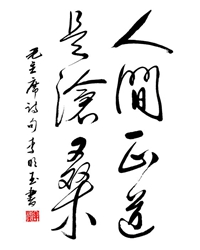 人間正道
是滄桑
毛主席詩句 李明玉書